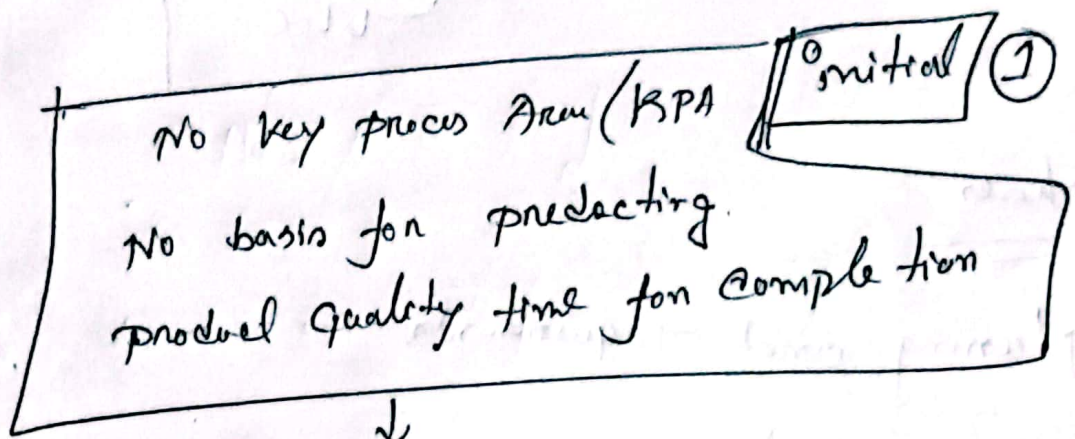 Initial ①
No key proces Area (KPA
No basis for predacting.
product Quality time for completion